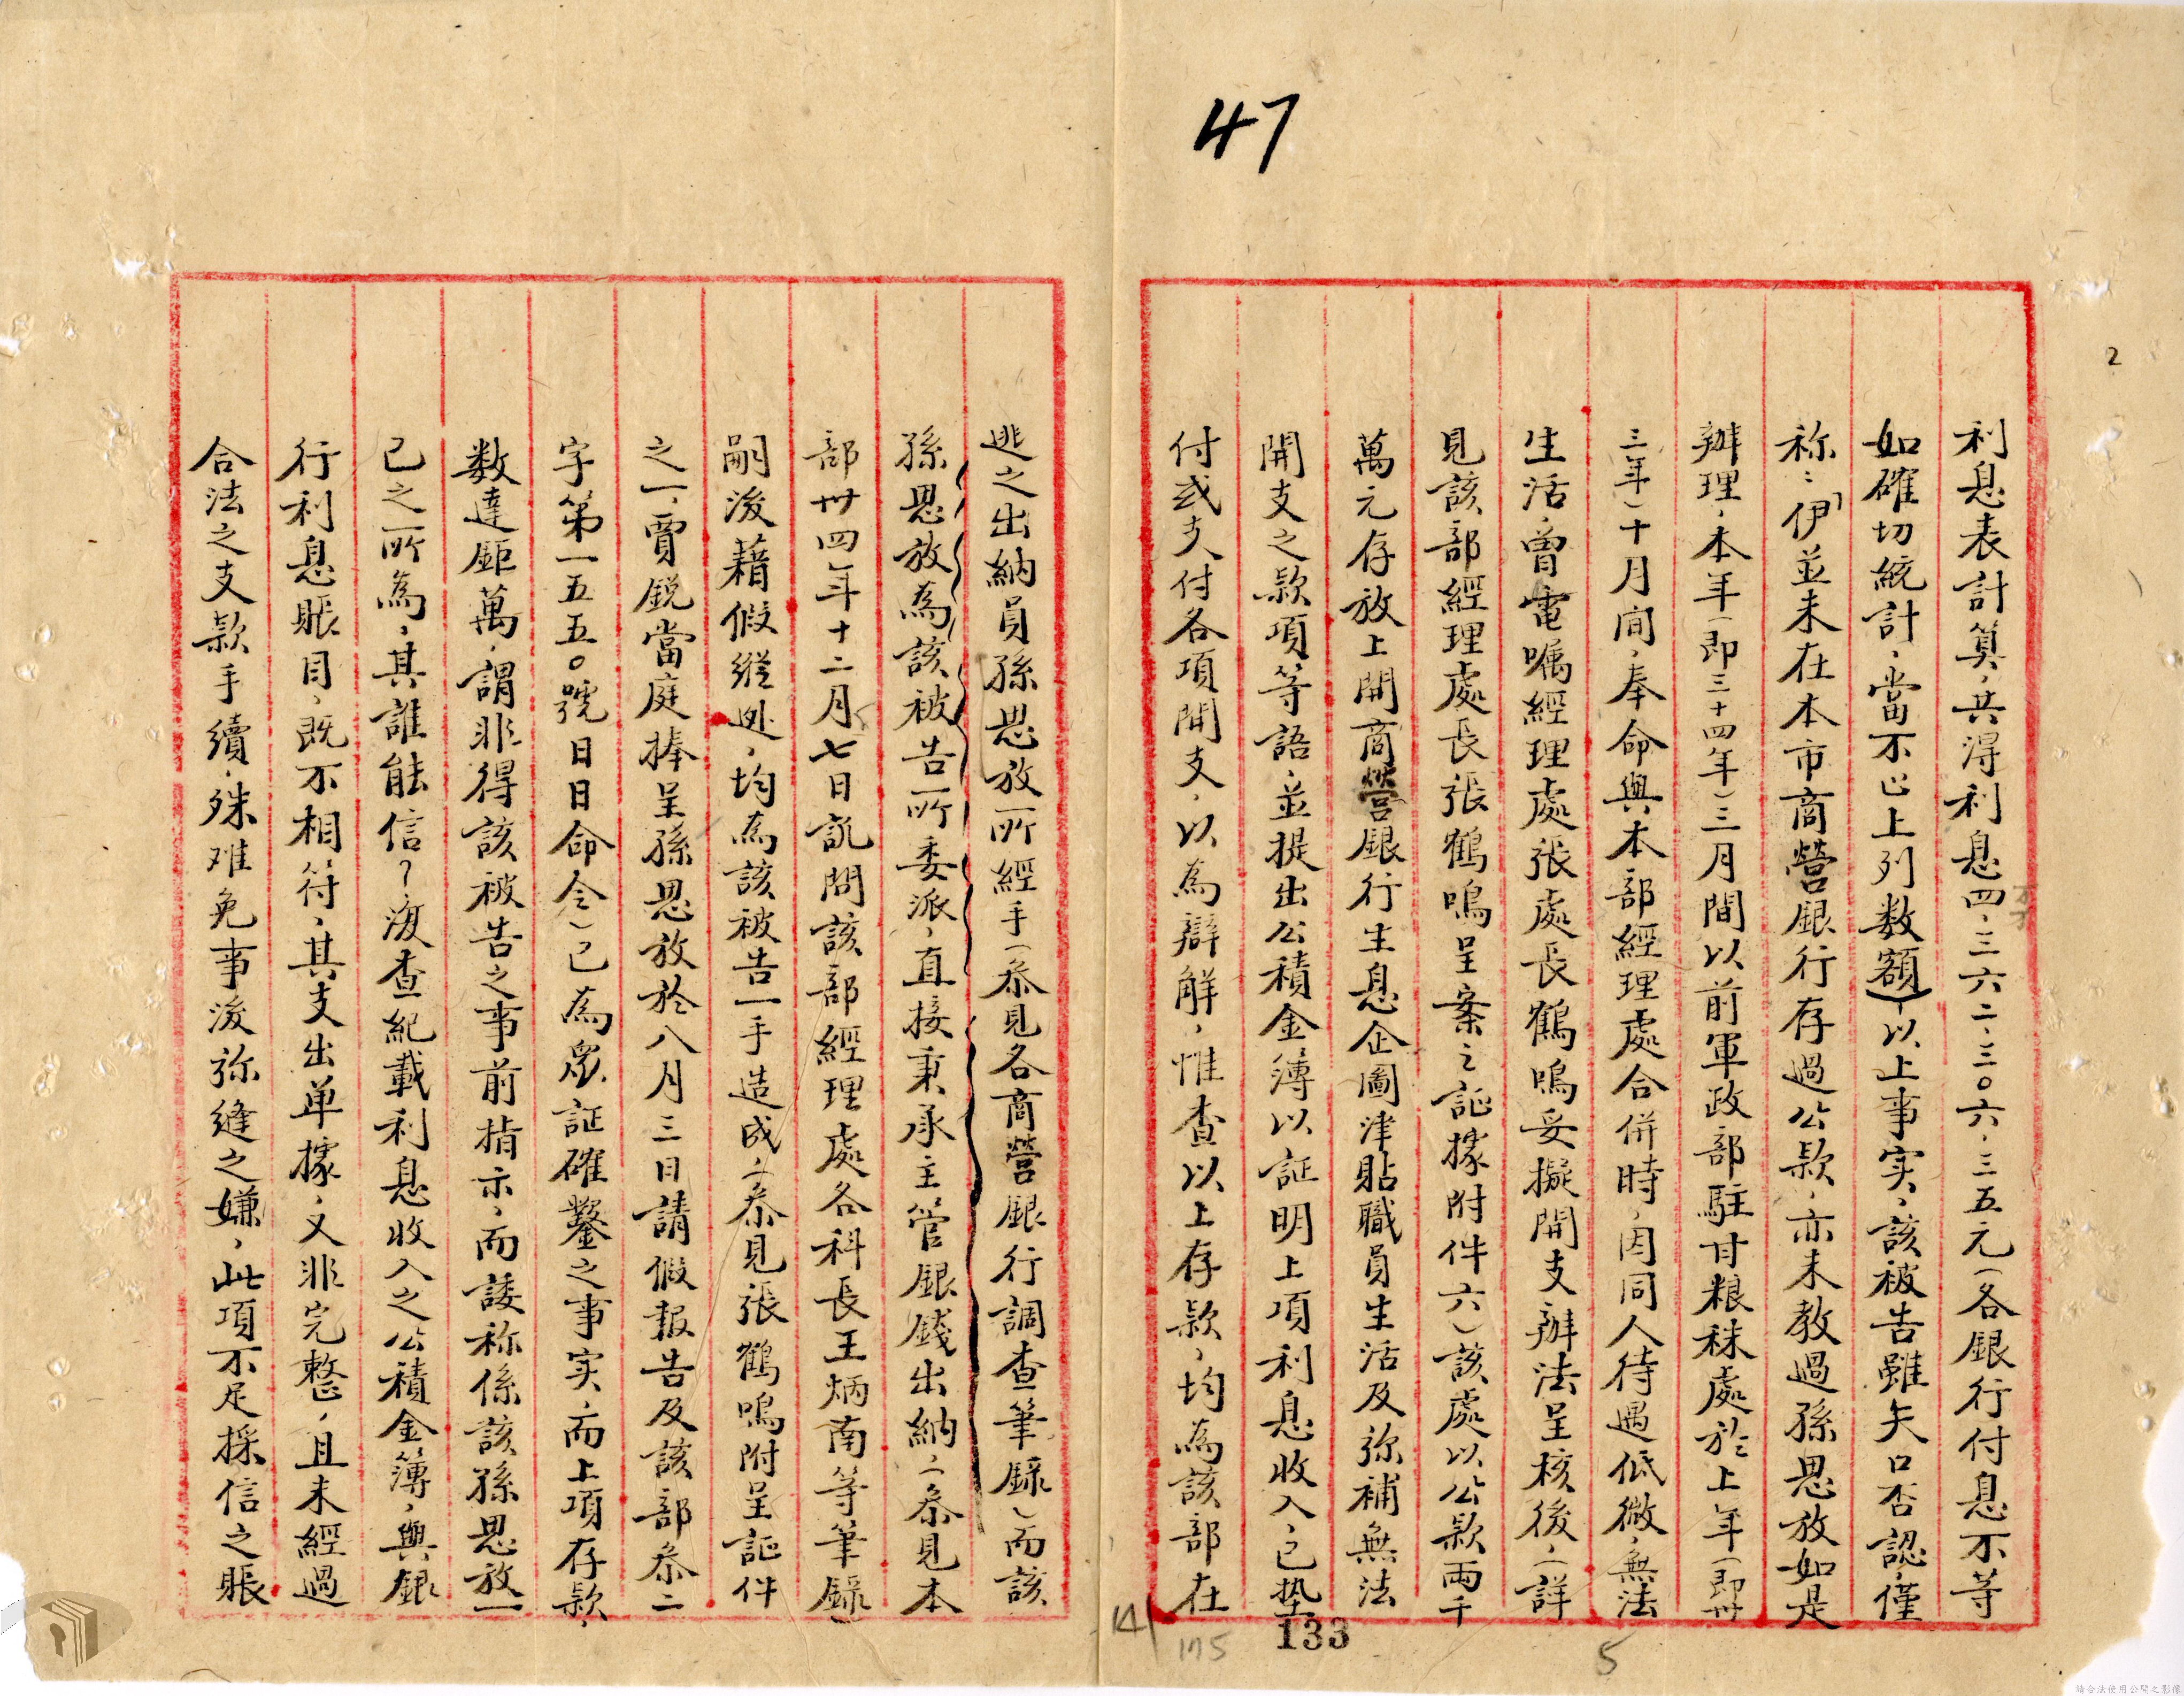 47
2
利息表計算，共得利息四、三六二、三〇六、三五元（各銀行付息不等
如確切統計，當不止上列数額）以上事实，該被告雖矢口否認，僅
称：「伊並未在本市商營銀行存過公款，亦未教過孫思放如是
辦理，本年（即三十四年）三月間以前軍政部駐甘粮秣處於上年（即卅
三年）十月间，奉命與本部經理處合併時，因同人待遇低微，無法
生活，曾電嘱經理處張處長鶴鳴妥擬開支辦法呈核後，（詳
見該部經理處長張鶴鳴呈案之証據附件六）該處以公款兩千
萬元存放上開商營銀行生息企圖津貼職員生活及弥補無法
開支之款項等語，並提出公積金簿以証明上項利息收入，已墊
付或支付各項開支，以為辯解，惟查以上存款，均為該部在
逃之出納員孫思放所經手（叅見各商營銀行調查筆錄）而該
孫思放為該被告所委派，直接秉承主管銀錢出納，（叅見本
部卅四年十二月七日訊問該部經理處各科長王炳南等筆錄）
嗣後藉假縱逃，均為該被告一手造成，（叅見張鶴鳴附呈証件
之一，賈銳當庭捧呈孫思放於八月三日請假報告及該部叅二
字第一五五〇號日日命令）已為眾証確鑿之事实，而上項存款，
数達鉅萬，謂非得該被告之事前指示，而諉称係該孫思放一
已之所為，其誰能信？復查紀載利息收入之公積金簿，與銀
行利息賬目，既不相符，其支出单據，又非完整，且未經過
合法之支款手續，殊难免事後弥縫之嫌，此項不足採信之賬
141
175
133
5
請合法使用公開之影像